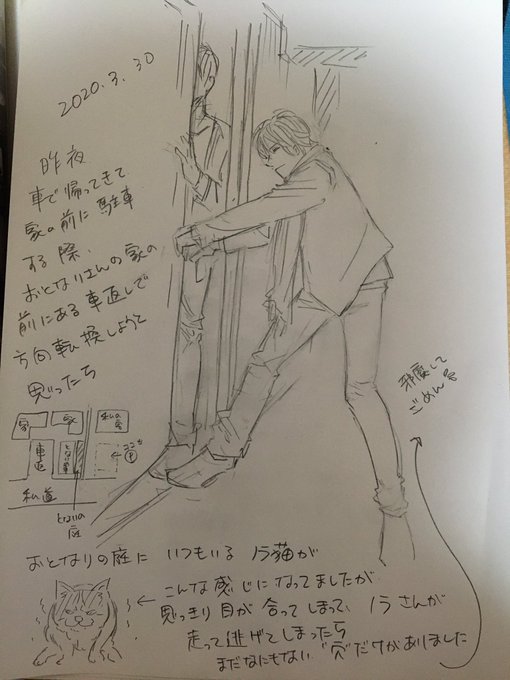 2020.3.30
昨夜
車で帰ってきて
家の前に駐車
する際、
おとなりさんの家の
前にある車返しで
方向転換しようと
思ったら
家
家
私の家
車返
となりの車
ココ
私道
となりの
庭
邪魔して
ごめん
おとなりの庭に いつもいる ノラ猫が
← こんな感じになってましたが
思っきり目が合ってしまって、ノラさんが
走って逃げてしまったら
まだなにもない "穴"だけがありました